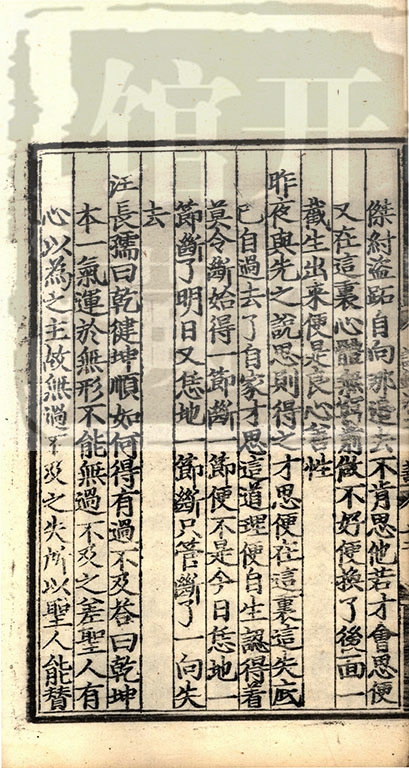 傑紂盜跖自向那邊去不肯思他若才會思便
又在這裏心體無窮前做不好便換了後面一
截生出來便是良心善性
昨夜與先之說思則得之才思便在這裏這失底
已自過去了自家才思這道理便自生認得着
莫令斷始得一節斷一節便不是今日恁地一
節斷了明日又恁地一節斷只管斷了一向失
去
汪長孺曰乾健坤順如何得有過不及答曰乾坤
本一氣運於無形不能無過不及之差聖人有
心以為之主故無過不及之失所以聖人能贊